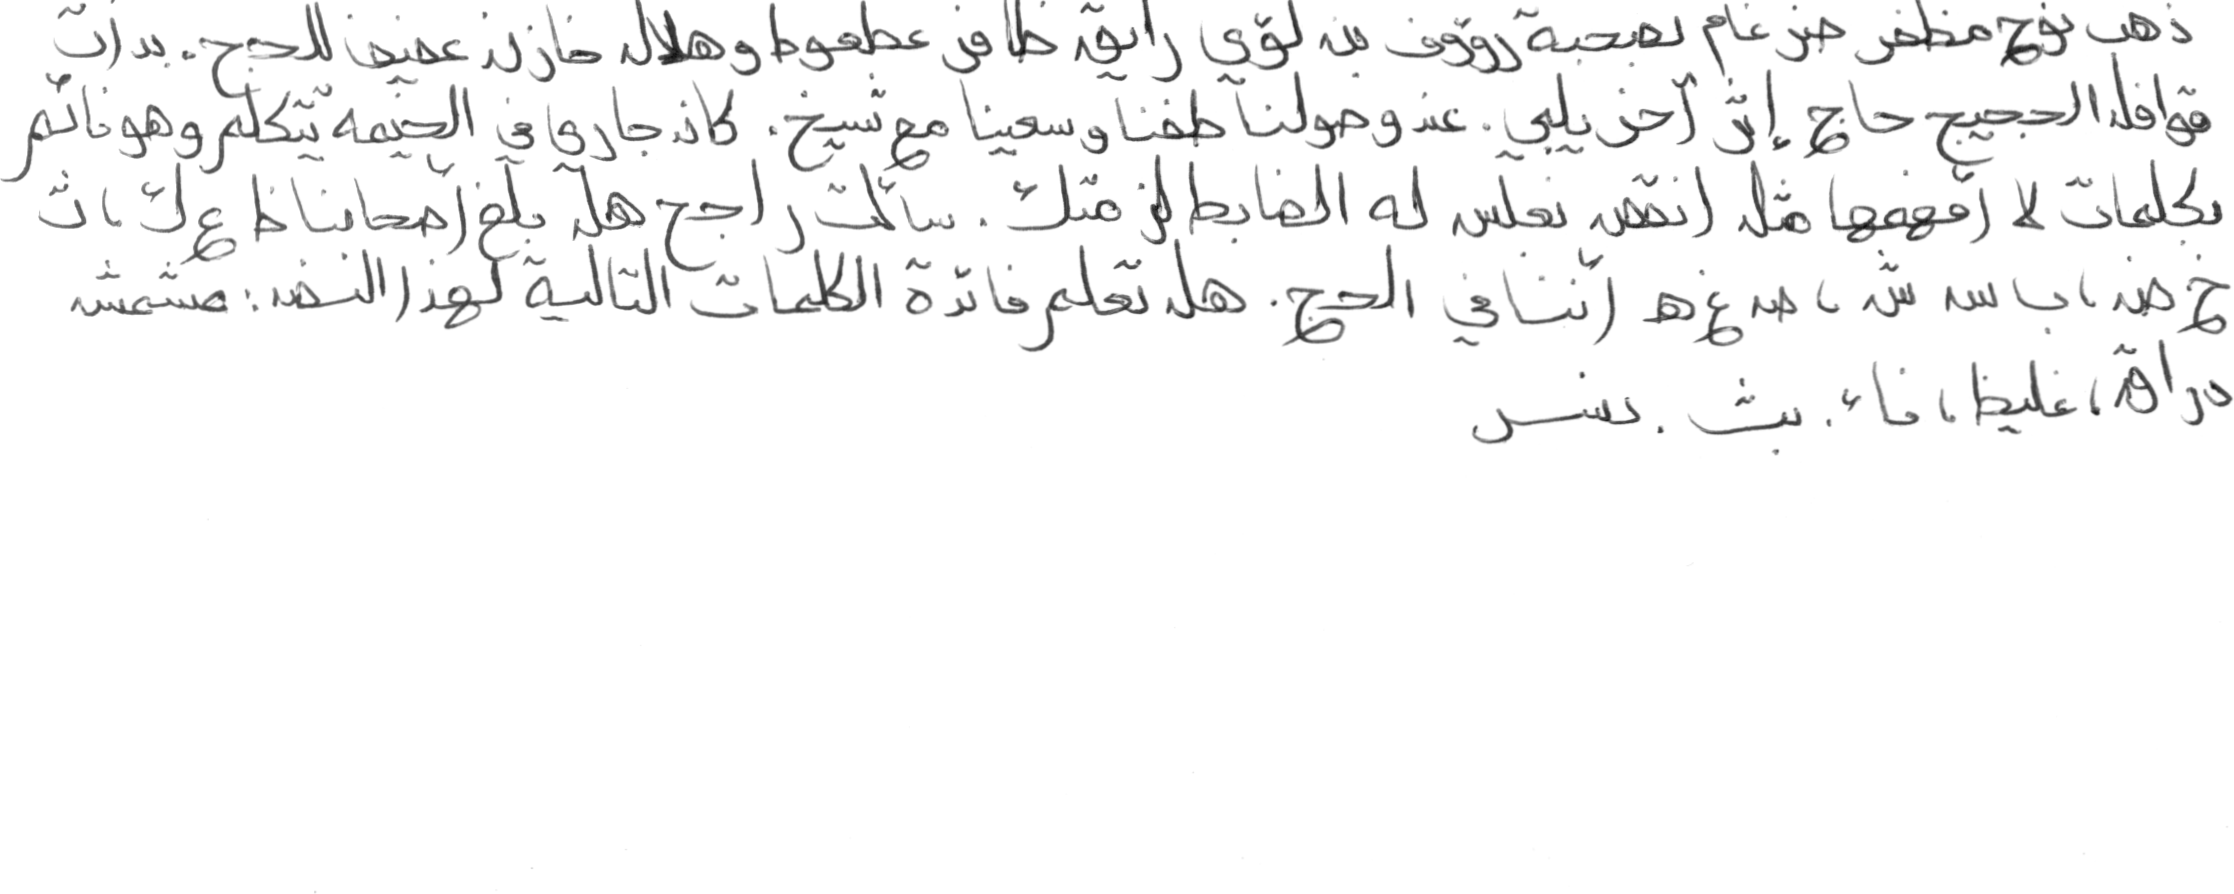 ذهب نوح مظفر ضرغام بصحبة رؤوف بن لؤي رايق ظافر عطعوط وهلال خازن عفيف للحج. بدأت
قوافل الحجيج حاج إثر آخر يلبي. عند وصولنا طفنا وسعينا مع شيخ. كان جاري في الخيمه يتكلم وهو نائم
بكلمات لا أفهمها مثل انقض نعلس له الضابط لأزمتك. سألت راجح هل بلغ أصحابنا ظ ع ك ، ث
خ ض ، ب س ش ، ص غ ه أننا في الحج. هل تعلم فائدة الكلمات التالية لهذا النص: مشمش
دراق ، غليظ ، فاء. بث. نسر